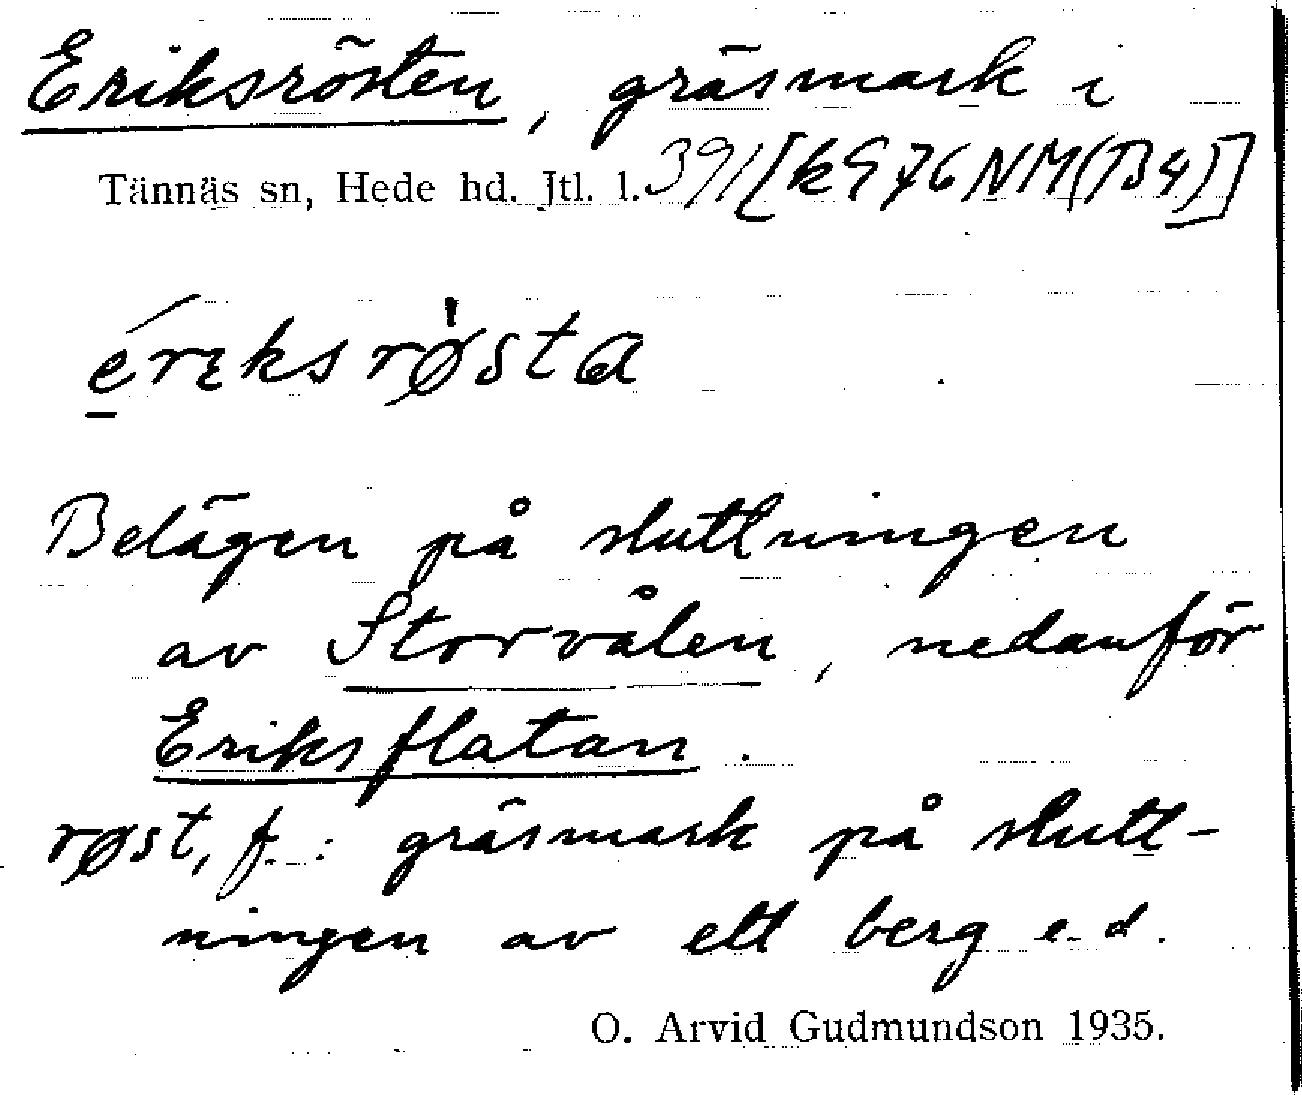 Eriksrösten, gräsmark i
Tännäs sn, Hede hd. Jtl. l. 391 [k976NM(B4)]
é̱rɩksrø̍sta
Belägen på sluttningen
av Storvålen, nedanför
Eriksflatan.
røst, f.: gräsmark på slutt-
ningen av ett berg e. d.
O. Arvid Gudmundson 1935.